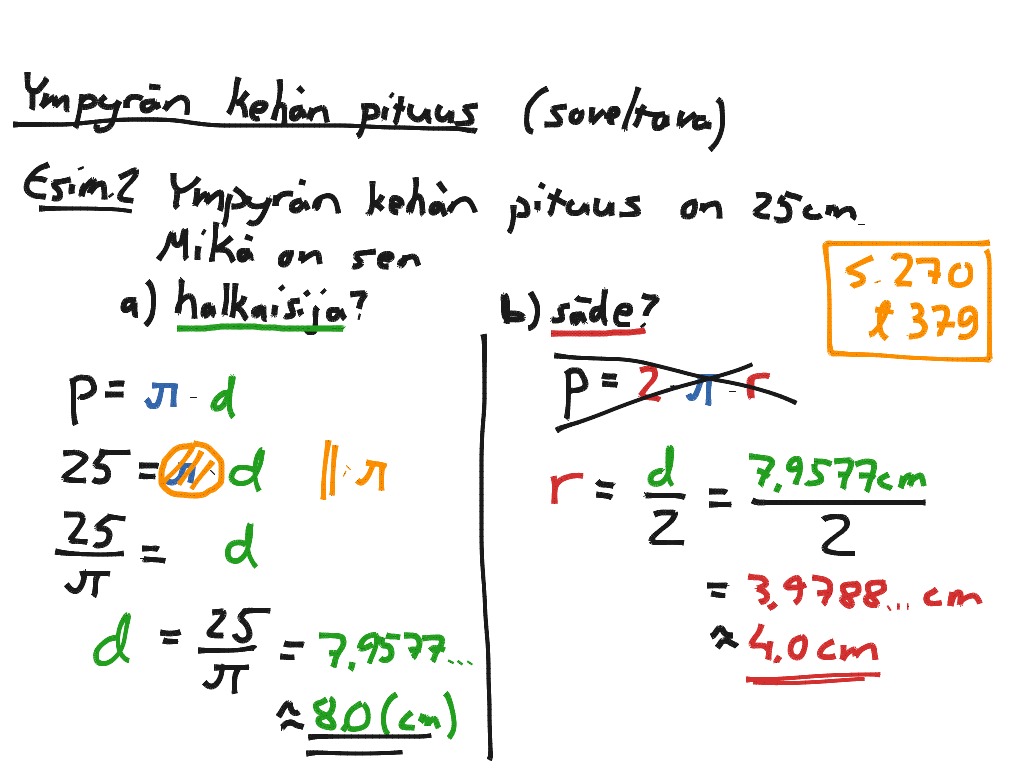 Ympyrän kehän pituus (soveltava)
Esim.2 Ympyrän kehän pituus on 25cm.
Mikä on sen
a) halkaisija?
b) säde?
s. 270
t 379
p = π · d
25 = π · d || : π
25/π = d
d = 25/π = 7,9577...
≈ 8,0 (cm)
p = 2 · π · r
r = d/2 = 7,9577cm/2
= 3,9788... cm
≈ 4,0 cm